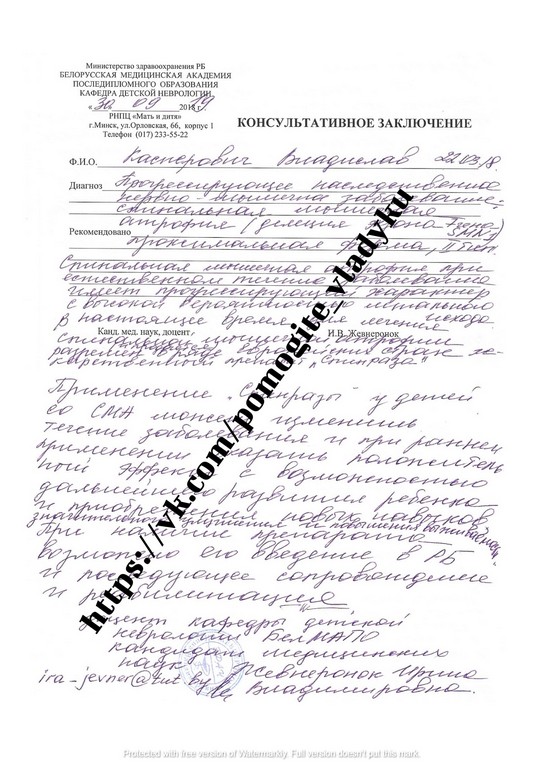 Министерство здравоохранения РБ
БЕЛОРУССКАЯ МЕДИЦИНСКАЯ АКАДЕМИЯ
ПОСЛЕДИПЛОМНОГО ОБРАЗОВАНИЯ
КАФЕДРА ДЕТСКОЙ НЕВРОЛОГИИ
«30» 09 2019 г.
РНПЦ «Мать и дитя»
г.Минск, ул.Орловская, 66, корпус 1
Телефон (017) 233-55-22
КОНСУЛЬТАТИВНОЕ ЗАКЛЮЧЕНИЕ
Ф.И.О. Касперович Владислав 22.03.18.
Диагноз Прогрессирующее наследственное
нервно-мышечное заболевание -
спинальная мышечная
атрофия (делеция экзона 7 гена
Рекомендовано проксимальная форма, II тип.
Спинальная мышечная атрофия при
естественном течении заболевания
имеет прогрессирующий характер
с высокой вероятностью летального
исхода.
В настоящее время для лечения
Канд. мед. наук, доцент И.В. Жевнеронок
спинальной мышечной атрофии
разрешен в ряде европейских стран ле-
карственный препарат „Спинраза"
Применение „Спинразы" у детей
со СМА может изменить
течение заболевания и при раннем
применении оказать положитель
ный эффект с возможностью
дальнейшего развития ребенка
и приобретения новых навыков,
значительного улучшения и повышения выживаемости.
При наличии препарата
возможно его введение в РБ
и последующее сопровождение
и реабилитация
Доцент кафедры детской
неврологии БелМАПО
кандидат медицинских
наук Жевнеронок Ирина
ira_jevner@tut.by Владимировна.
https://vk.com/pomogite_vladyku
Protected with free version of Watermarkly. Full version doesn't put this mark.